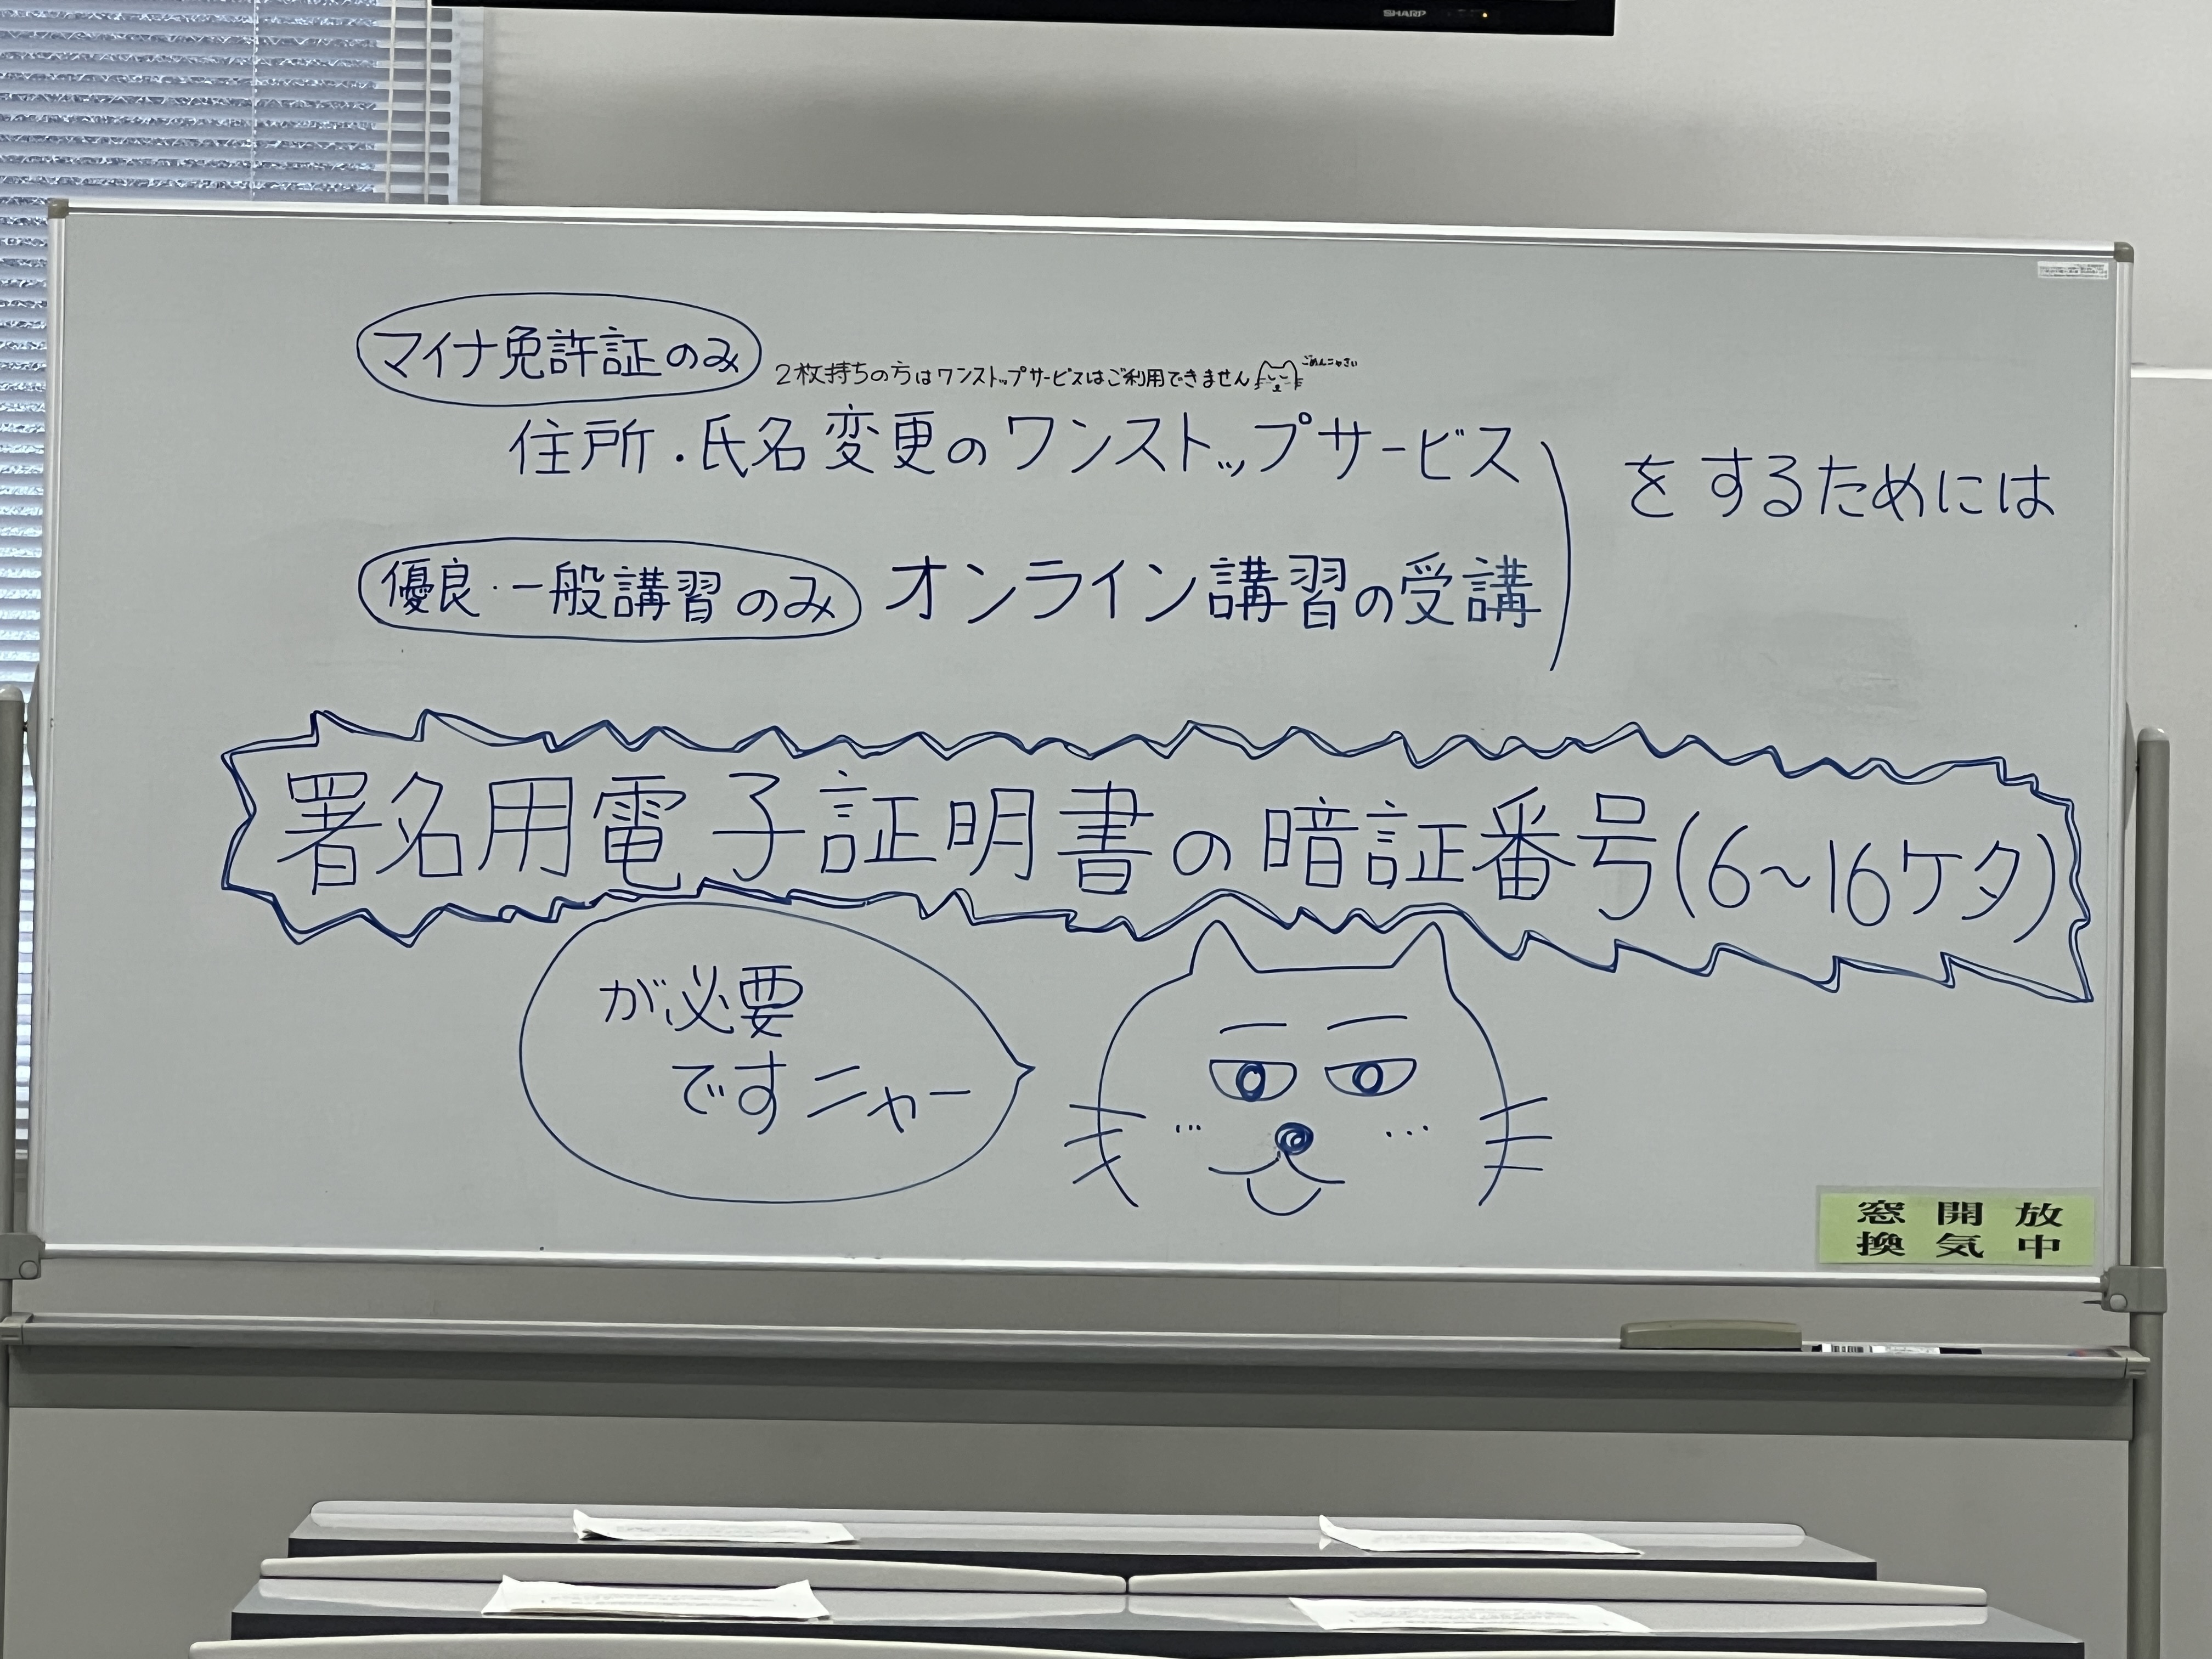 SHARP
マイナ免許証のみ
2枚持ちの方はワンストップサービスはご利用できません
ごめんニャさい
住所・氏名変更のワンストップサービス
をするためには
優良・一般講習のみ
オンライン講習の受講
署名用電子証明書の暗証番号(6~16ケタ)
が必要
ですニャー
窓開放
換気中